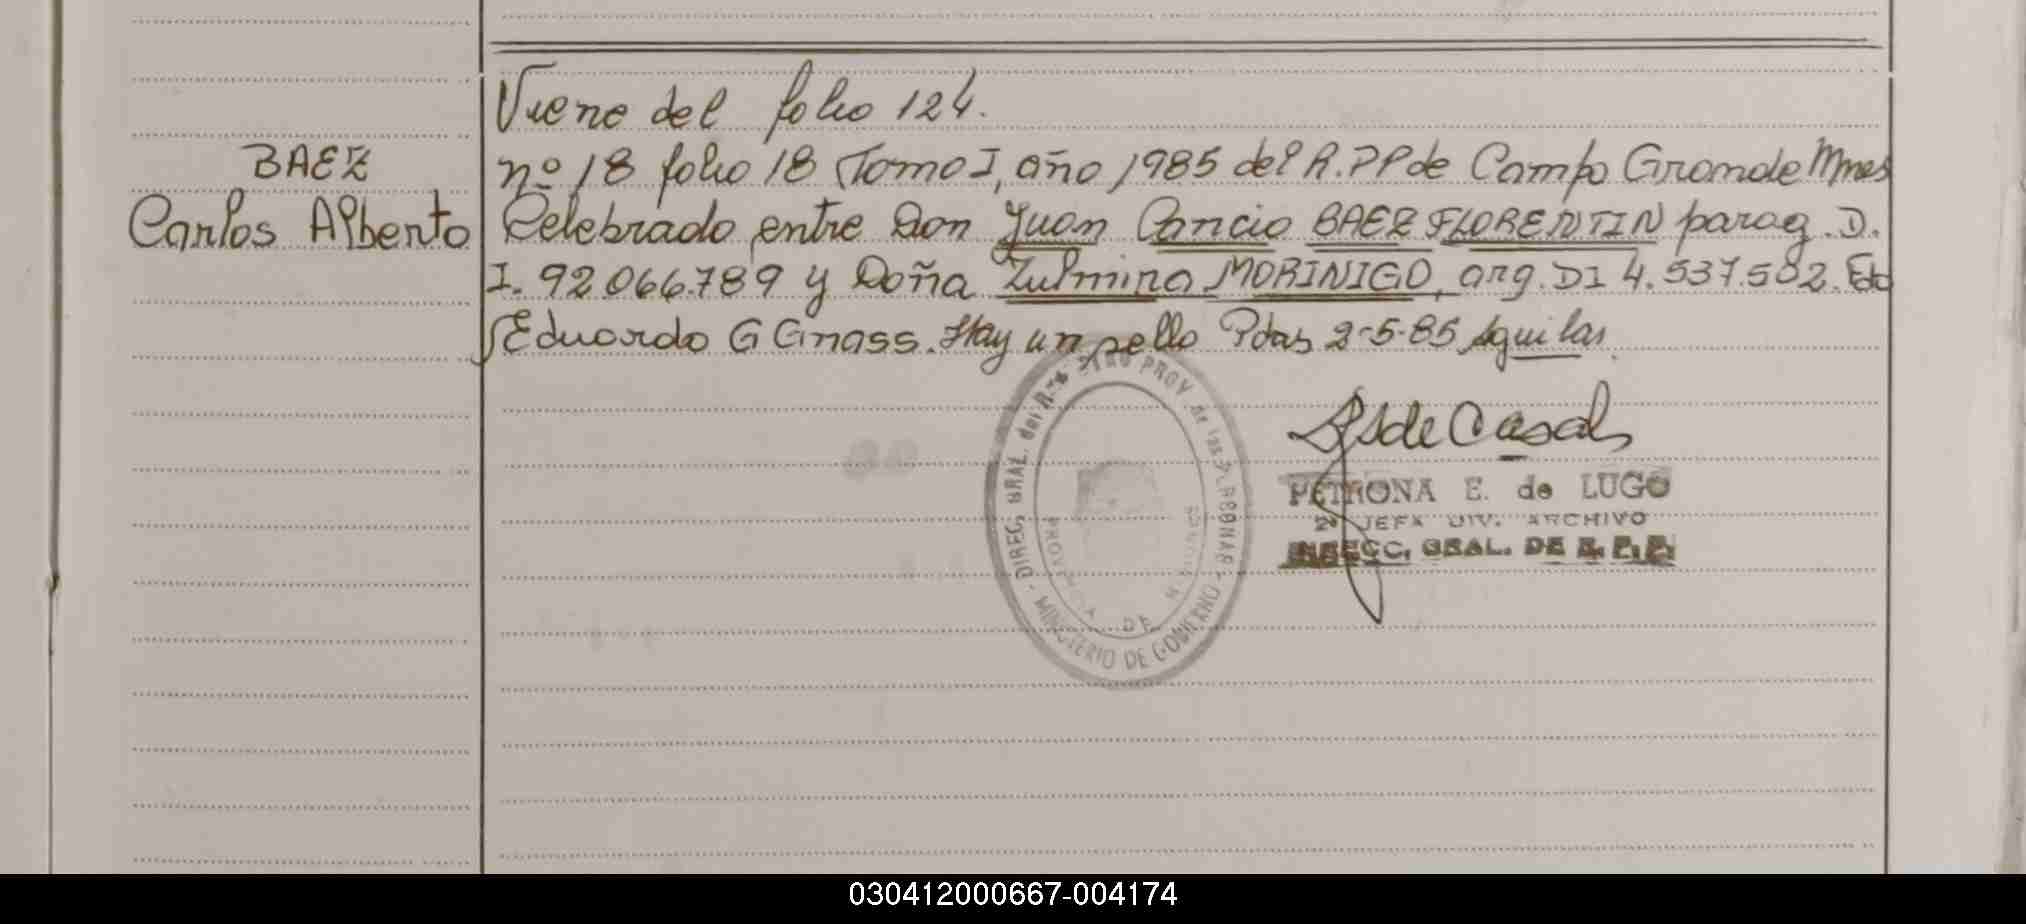 Viene del folio 124.
BAEZ
Carlos Alberto
nº 18 folio 18 Tomo I, año 1985 del R.PP de Campo Grande Mnes
Celebrado entre Don Juan Cancio BAEZ FLORENTIN parag. D.
I. 92.066.789 y Doña Zulmira MORINIGO, arg. DI 4.537.502. Fdo
Eduardo G Gnass. Hay un sello Pdas 2-5-85 Aguilar.
DIREC. GRAL. del REGISTRO PROV. de las PERSONAS
MINISTERIO DE GOBIERNO
PROVINCIA DE MISIONES
PETRONA E. de LUGO
2º JEFA DIV. ARCHIVO
INSPECC. GRAL. DE R. P. P.
030412000667-004174